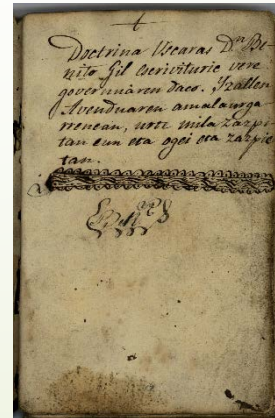 Doctrina Uscaras Dⁿ Be
nito Gil escrivituric vere
governuiaren daco. Itallen
Avenduaren amalaurga
rrenean, urte mila zazpi
tan eun eta ogei eta zazpie
tan.